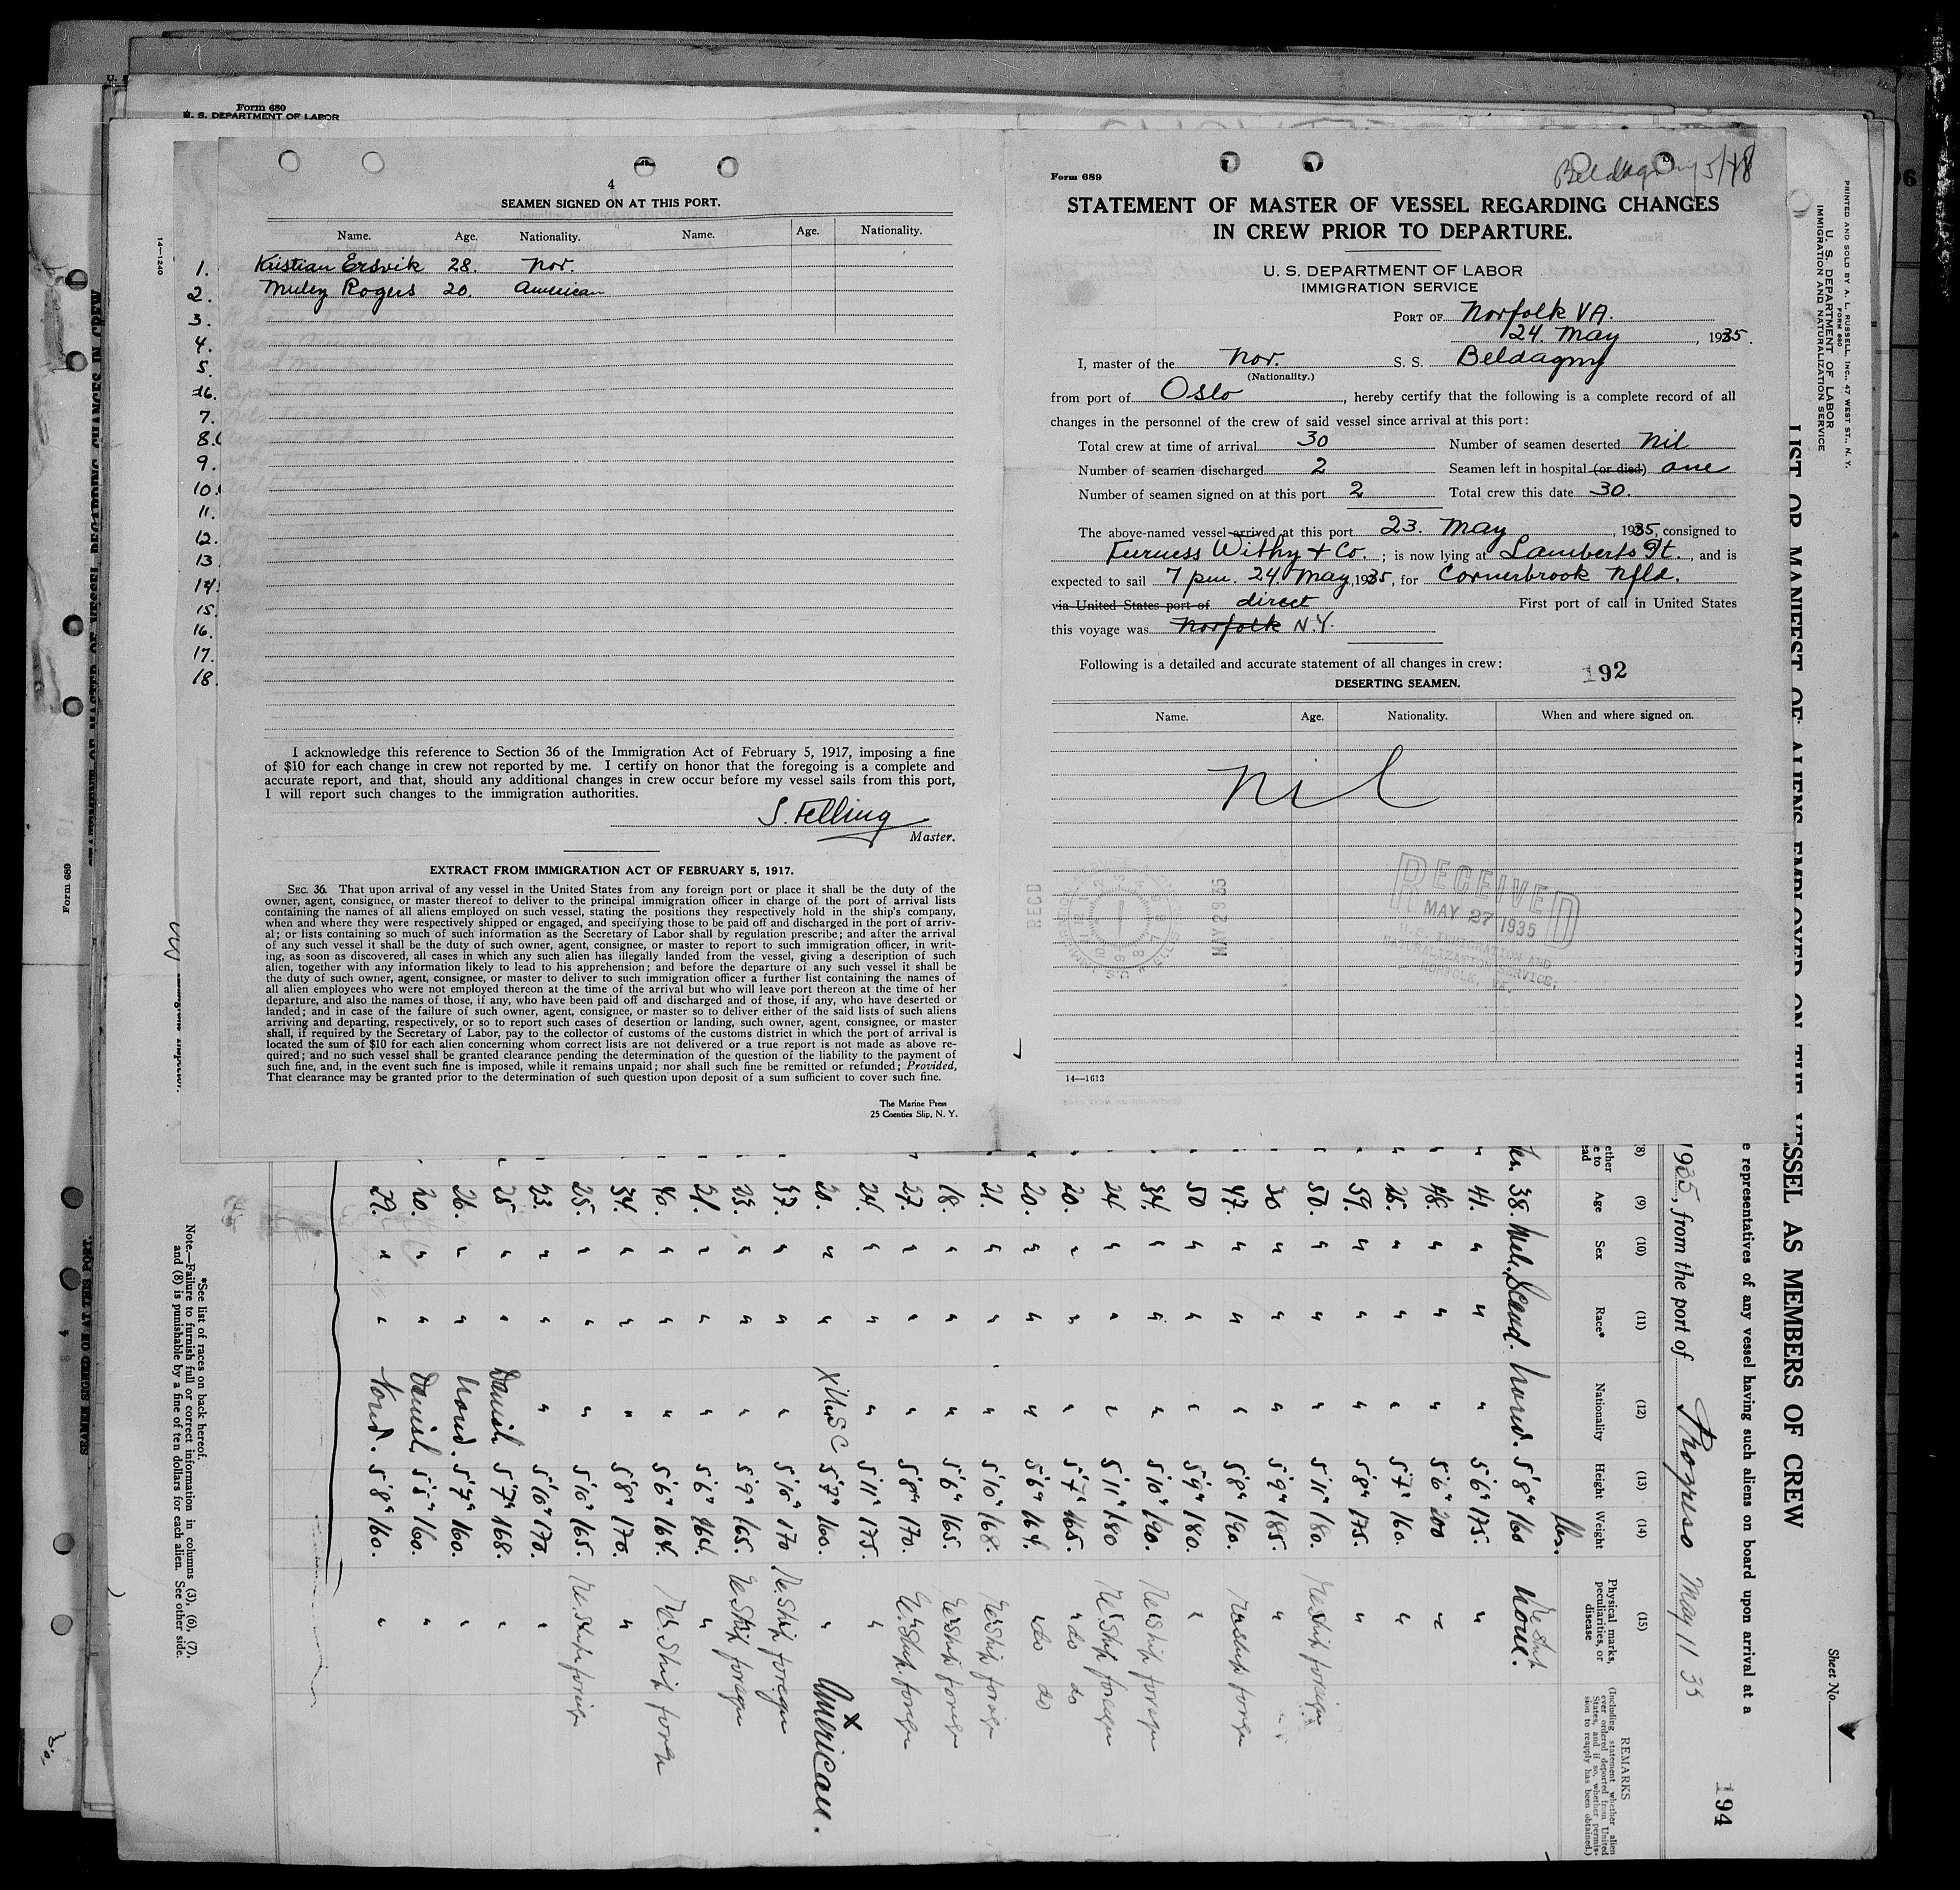 Form 680
U. S. DEPARTMENT OF LABOR
4
SEAMEN SIGNED ON AT THIS PORT.
Name. Age. Nationality. Name. Age. Nationality.
1. Kristian Ersvik 28. Nor.
2. Muley Rogers 20. American
3.
4.
5.
6.
7.
8.
9.
10.
11.
12.
13.
14.
15.
16.
17.
18.
I acknowledge this reference to Section 36 of the Immigration Act of February 5, 1917, imposing a fine
of $10 for each change in crew not reported by me. I certify on honor that the foregoing is a complete and
accurate report, and that, should any additional changes in crew occur before my vessel sails from this port,
I will report such changes to the immigration authorities.
S. Felling
Master.
EXTRACT FROM IMMIGRATION ACT OF FEBRUARY 5, 1917.
SEC. 36. That upon arrival of any vessel in the United States from any foreign port or place it shall be the duty of the
owner, agent, consignee, or master thereof to deliver to the principal immigration officer in charge of the port of arrival lists
containing the names of all aliens employed on such vessel, stating the positions they respectively hold in the ship's company,
when and where they were respectively shipped or engaged, and specifying those to be paid off and discharged in the port of arriv-
al; or lists containing so much of such information as the Secretary of Labor shall by regulation prescribe; and after the arrival
of any such vessel it shall be the duty of such owner, agent, consignee, or master to report to such immigration officer, in writ-
ing, as soon as discovered, all cases in which any such alien has illegally landed from the vessel, giving a description of such
alien, together with any information likely to lead to his apprehension; and before the departure of any such vessel it shall be
the duty of such owner, agent, consignee, or master to deliver to such immigration officer a further list containing the names of
all alien employees who were not employed thereon at the time of the arrival but who will leave port thereon at the time of her
departure, and also the names of those, if any, who have been paid off and discharged and of those, if any, who have deserted or
landed; and in case of the failure of such owner, agent, consignee, or master so to deliver either of the said lists of such aliens
arriving and departing, respectively, or so to report such cases of desertion or landing, such owner, agent, consignee, or master
shall, if required by the Secretary of Labor, pay to the collector of customs of the customs district in which the port of arrival is
located the sum of $10 for each alien concerning whom correct lists are not delivered or a true report is not made as above re-
quired; and no such vessel shall be granted clearance pending the determination of the question of the liability to the payment of
such fine, and, in the event such fine is imposed, while it remains unpaid; nor shall such fine be remitted or refunded; Provided,
That clearance may be granted prior to the determination of such question upon deposit of a sum sufficient to cover such fine.
The Marine Press
25 Coenties Slip, N. Y.
14—1240
Form 689
Beldagny 5/48
STATEMENT OF MASTER OF VESSEL REGARDING CHANGES
IN CREW PRIOR TO DEPARTURE.
U. S. DEPARTMENT OF LABOR
IMMIGRATION SERVICE
PORT OF Norfolk VA.
24. May, 1935.
I, master of the Nor. S. S. Beldagny
(Nationality.)
from port of Oslo, hereby certify that the following is a complete record of all
changes in the personnel of the crew of said vessel since arrival at this port:
Total crew at time of arrival 30 Number of seamen deserted nil
Number of seamen discharged 2 Seamen left in hospital (or died) one
Number of seamen signed on at this port 2 Total crew this date 30.
The above-named vessel arrived at this port 23. May, 1935, consigned to
Furness Withy & Co.; is now lying at Lamberts Pt., and is
expected to sail 7 pm. 24. May, 1935, for Cornerbrook Nfld.
via United States port of direct First port of call in United States
this voyage was Norfolk N.Y.
Following is a detailed and accurate statement of all changes in crew:
192
DESERTING SEAMEN.
Name. Age. Nationality. When and where signed on.
nil
RECD
MAY 29 35
RECEIVED
MAY 27 1935
U. S. IMMIGRATION AND
NATURALIZATION SERVICE,
NORFOLK, VA.
14—1613
PRINTED AND SOLD BY A. L. RUSSELL, INC., 47 WEST ST., N. Y.
FORM 680
U. S. DEPARTMENT OF LABOR
IMMIGRATION AND NATURALIZATION SERVICE
LIST OR MANIFEST OF ALIENS EMPLOYED ON THE VESSEL AS MEMBERS OF CREW
Sheet No.
194
e representatives of any vessel having such aliens on board upon arrival at a
1935, from the port of Progreso May 11 35
(8) (9) (10) (11) (12) (13) (14) (15)
Age Sex Race* Nationality Height Weight Physical marks, peculiarities, or disease
REMARKS
(Including statement whether alien ever ordered deported from United States, and if so, whether permission to reapply has been obtained.)
lbs.
38. Mel. Scand. Norw. 5'8" 160 None.
41. " " " 5'6" 175. "
48. " " " 5'6" 200 "
26. " " " 5'7" 160. "
59. " " " 5'8" 175. "
50. " " " 5'11" 180. Reship foreign
30 " " " 5'9" 185. "
47. " " " 5'8" 190. Reship foreign
50 " " " 5'9" 180. "
34. " " " 5'10" 190. Reship foreign
24 " " " 5'11" 180 Reship foreign
20. " " " 5'7" 165. " do do
20. " " " 5'6" 164. " do do
21. " " " 5'10" 168. Reship foreign
18. " " " 5'6" 165. Reship foreign
27. " " " 5'8" 170. Reship foreign
24. " " " 5'11" 175. "
20. " " X U.S.C 5'7" 160. " X American.
37. " " " 5'10" 170 Reship foreign
23. " " " 5'9" 165. Reship foreign
21. " " " 5'6" 164. "
40. " " " 5'6" 164. Reship foreign
34. " " " 5'8" 170. "
25. " " " 5'10" 165. Reship foreign
23. " " " 5'10" 170. "
25. " " Danish 5'7" 168. "
26. " " Norw. 5'7" 160. "
20. " " Danish 5'5" 160. "
29. " " Norw. 5'8" 160. "
*See list of races on back hereof.
Note.—Failure to furnish full or correct information in columns (3), (6), (7),
and (8) is punishable by a fine of ten dollars for each alien. See other side.
Form 689
SEAMEN SIGNED ON AT THIS PORT.